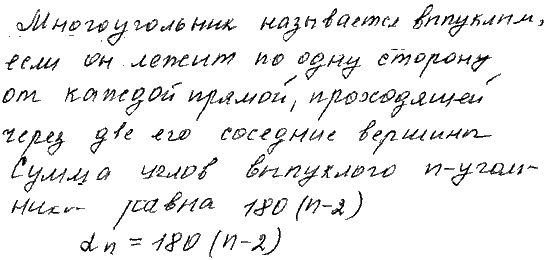 Многоугольник называется выпуклым,
если он лежит по одну сторону
от каждой прямой, проходящей
через две его соседние вершины
Сумма углов выпуклого n-уголь-
ника равна 180 (n-2)
αn = 180 (n-2)